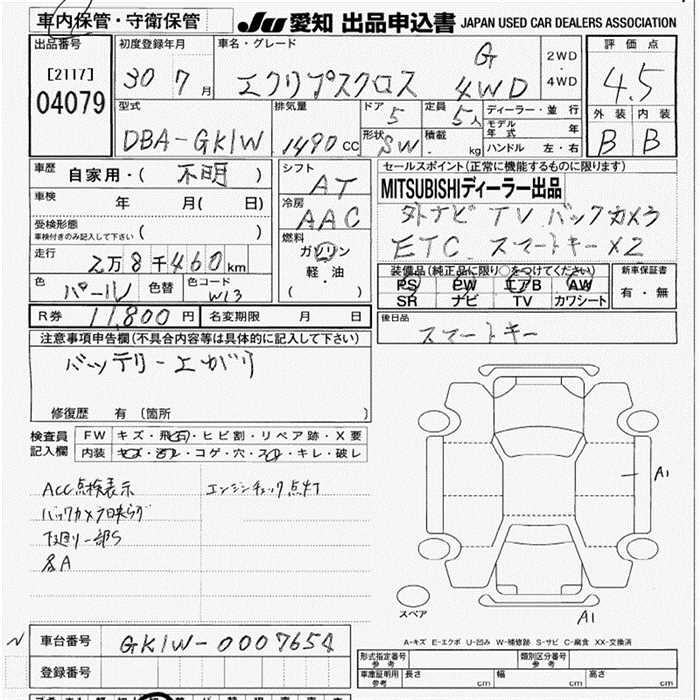 車内保管・守衛保管
JU 愛知 出品申込書 JAPAN USED CAR DEALERS ASSOCIATION
出品番号
[2117]
04079
初度登録年月
30 7月
車名・グレード
G
エクリプスクロス 4WD
2WD
・
4WD
評価点
4.5
型式
DBA-GK1W
排気量
1490cc
ドア
5
定員
5人
形状
SW
積載
・ kg
ディーラー・並行
モデル年式 年
ハンドル 左・右
外装 内装
B B
車歴
自家用・(不明)
車検
年 月( 日)
受検形態
車検付きのみ記入して下さい ( )
走行
2万8千460km
色
パール
色替
色コード
W13
シフト
AT
冷房
AAC
燃料
ガソリン
軽・油
( )
セールスポイント(正常に機能するものに限ります)
MITSUBISHIディーラー出品
外ナビ TV バックカメラ
ETC スマートキー×2
装備品(純正品に限り○をつけてください)
PS PW エアB AW
SR ナビ TV カワシート
新車保証書
有・無
R券 11,800円 名変期限 月 日
後日品
スマートキー
注意事項申告欄(不具合内容等は具体的に記入して下さい)
バッテリー上がり
修復歴 有(箇所 )
検査員
記入欄
FW キズ・飛石・ヒビ割・リペア跡・X要
内装 キズ・汚レ・コゲ・穴・スレ・キレ・破レ
ACC点検表示 エンジンチェック点灯
バックカメラ映らず
下廻り一部S
各A
A1
A1
スペア
A-キズ E-エクボ U-凹み W-補修跡 S-サビ C-腐食 XX-交換済
車台番号 GK1W-0007654
登録番号
形式指定番号
参考
類別区分番号
参考
車庫証明用
参考
長さ cm 幅 cm 高さ cm